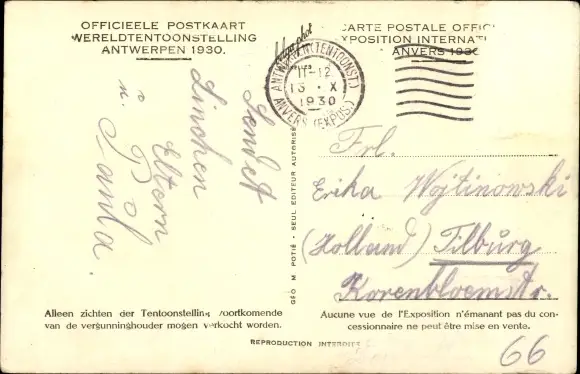 OFFICIEELE POSTKAART
WERELDTENTOONSTELLING
ANTWERPEN 1930.
CARTE POSTALE OFFIC
XPOSITION INTERNATI
ANVERS 1930
ANTWERPEN (TENTOONST.)
11-12
13 · X
1930
ANVERS (EXPOS.)
Sendet
Linchen
Eltern
u. Paula.
Frl.
Erika Wojtinowski
(Holland) Tilburg
Korenbloemstr.
66
GÉO M. POTIÉ - SEUL EDITEUR AUTORISÉ
Alleen zichten der Tentoonstelling voortkomende
van de vergunninghouder mogen verkocht worden.
Aucune vue de l'Exposition n'émanant pas du con-
cessionnaire ne peut être mise en vente.
REPRODUCTION INTERDITE